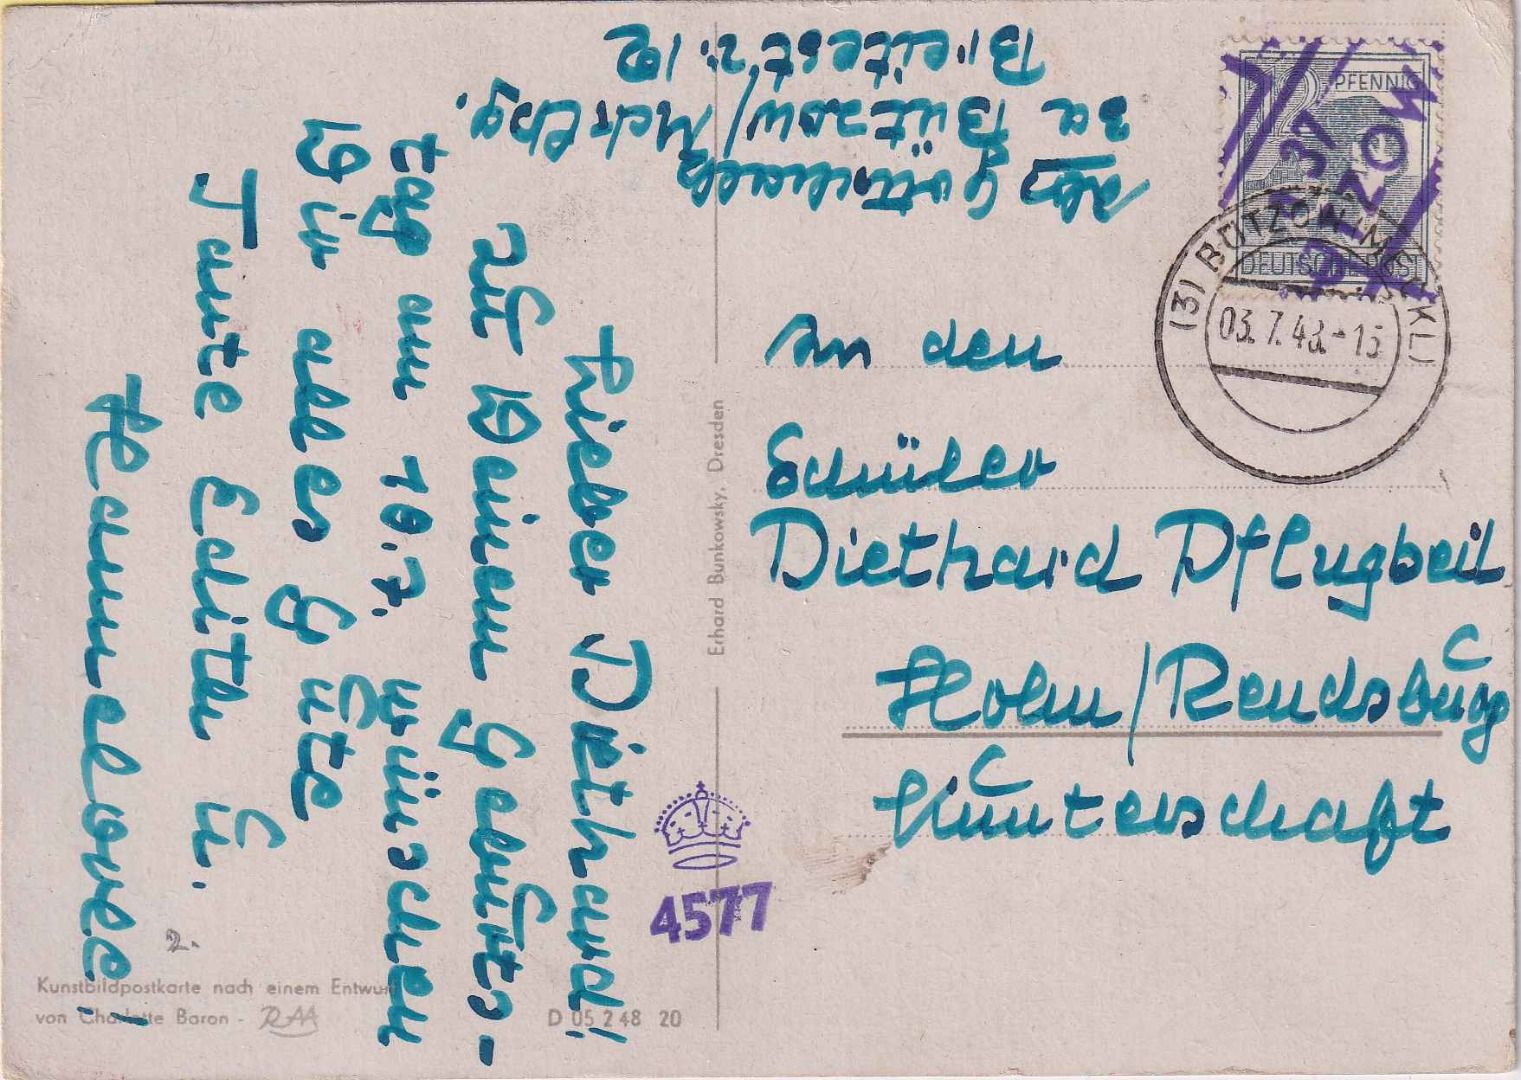 Lieber Diethard!
Zu Deinem Geburts-
tag am 10.7. wünschen
Dir alles Gute
Tante Edith u.
Hannelore!
Abs
za Bützow/Mcklbg.
An den
Schüler
Diethard Pflugbeil
Holm/Rendsburg
PFENNIG
12
37
BÜTZOW
DEUTSCHE POST
(3) BÜTZOW (MECKL)
03.7.48.-15
Erhard Bunkowsky, Dresden
4577
2.
Kunstbildpostkarte nach einem Entwurf
von Charlotte Baron -
D 05 2 48 20